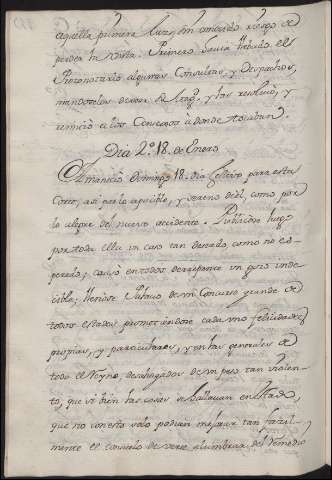 aquella primera luz, sin conocido riesgo de
perder la vista. Primero havia llevado el
Protonotario algunas Consultas, y Despachos,
mandoselos dexar, y los resolvió, y
remitió a los Consejos à donde tocaban.
Dia 2.º 18. de Enero
Amaneció Domingo 18. dia festivo para esta
Corte, asi por lo apacible, y sereno del, como por
lo alegre del nuevo accidente. Publicose luego
por toda ella un caso tan deseado como no es-
perado; causó en todos de repente un gozo inde-
cible; llenose Palacio de un Concurso grande de
todos estados prometiendose cada uno felicidades
proprias, y particulares, y en las generales de
todo el Reyno, desahogados de un peso tan violen-
to, que si bien las cosas se hallavan en estado,
que no con esto solo podian mejorar tan facil-
mente el consuelo de verse alumbrar del remedio